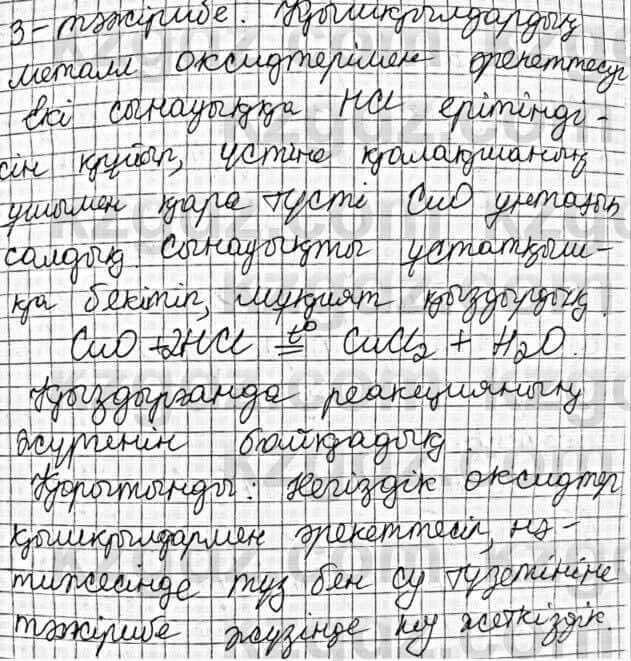 3-тәжірибе. Қышқылдардың
металл оксидтерімен әрекеттесуі
Екі сынауыққа HCl ерітінді-
сін құйып, үстіне қалақшаның
ұшымен қара түсті CuO ұнтағын
салдық. Сынауықты ұстатқыш-
қа бекітіп, мұқият қыздырдық.
CuO + 2HCl t° = CuCl2 + H2O.
Қыздырғанда реакцияның
жүретінін байқадық.
Қорытынды: Негіздік оксидтер
қышқылдармен әрекеттесіп, нә-
тижесінде тұз бен су түзетініне
тәжірибе жүзінде көз жеткіздік.